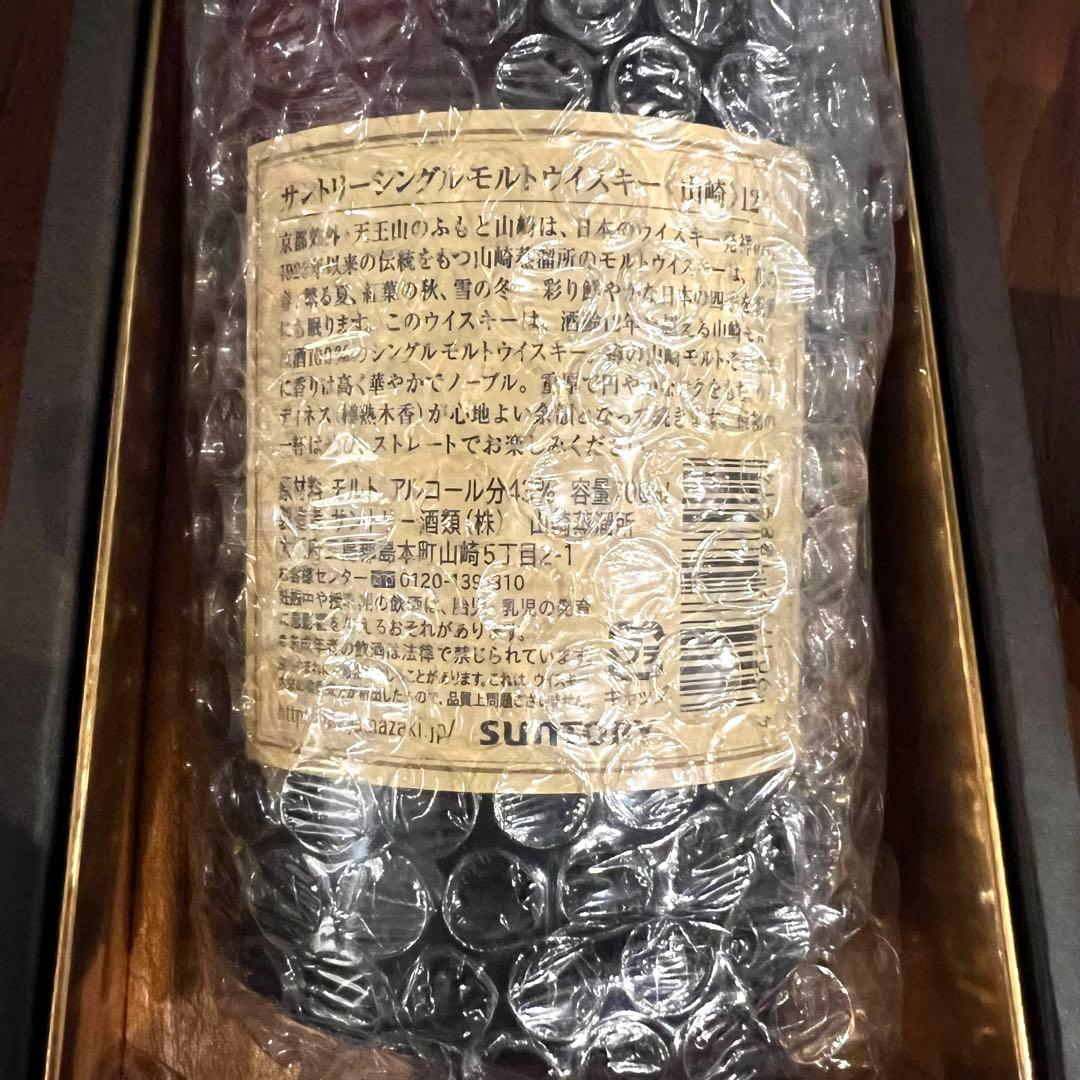 サントリーシングルモルトウイスキー〈山崎〉12
京都郊外・天王山のふもと山崎は、日本のウイスキー発祥の
年以来の伝統をもつ山崎蒸溜所のモルトウイスキーは、
繁る夏、紅葉の秋、雪の冬… 彩り鮮やかな日本の四季を
にも眠ります。このウイスキーは、酒齢12年を超える山崎モルト
原酒100%のシングルモルトウイスキー。 山崎モルト
に香りは高く華やかでノーブル。重厚で円やかなコクを
ディネス(樽熟木香)が心地よい余韻となって続きます。最初の
一杯は ストレートでお楽しみください
原材料 モルト アルコール分43% 容量700ml
製造者 サントリー酒類(株) 山崎蒸溜所
大阪府三島郡島本町山崎5丁目2-1
お客様センター 0120-139-310
妊娠中や授乳期の飲酒は、胎児・乳児の発育
に悪影響を与えるおそれがあります。
未成年者の飲酒は法律で禁じられています
ことがあります。これは、ウイスキー
したもので、品質上問題ございません。
キャップ
http:// yamazaki.jp/ SUNTORY